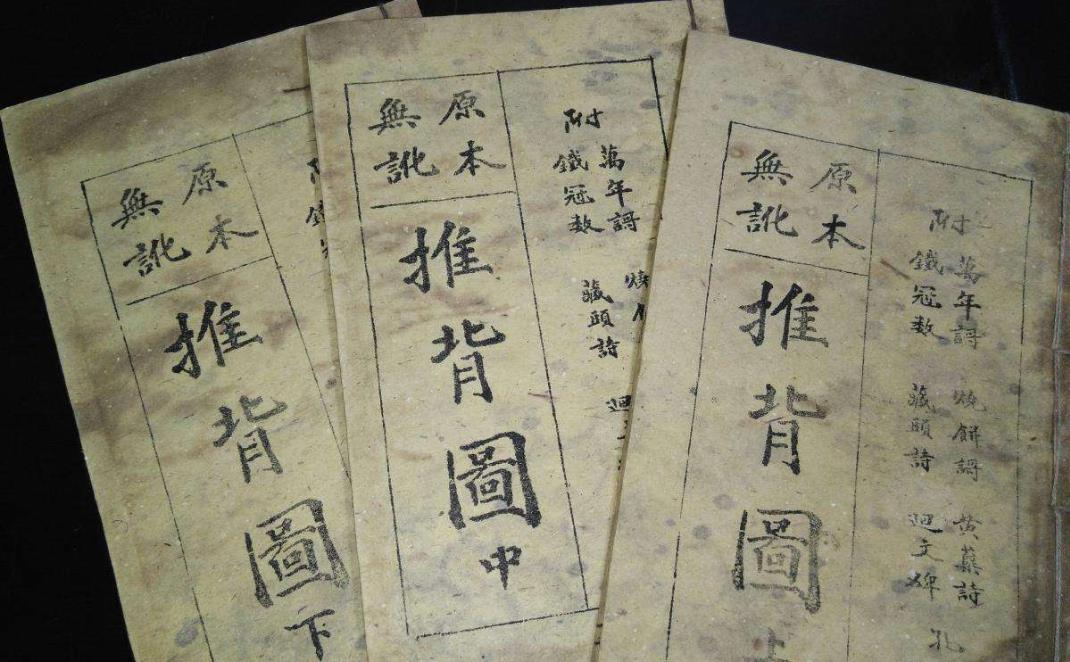 附
萬年謌 燒餅謌 黃蘗詩
鐵冠數 藏頭詩 迴文碑
孔
原本
無訛
推背圖上
附
萬年謌
鐵冠數 藏頭詩
原本
無訛
推背圖中
原本
無訛
推背圖下